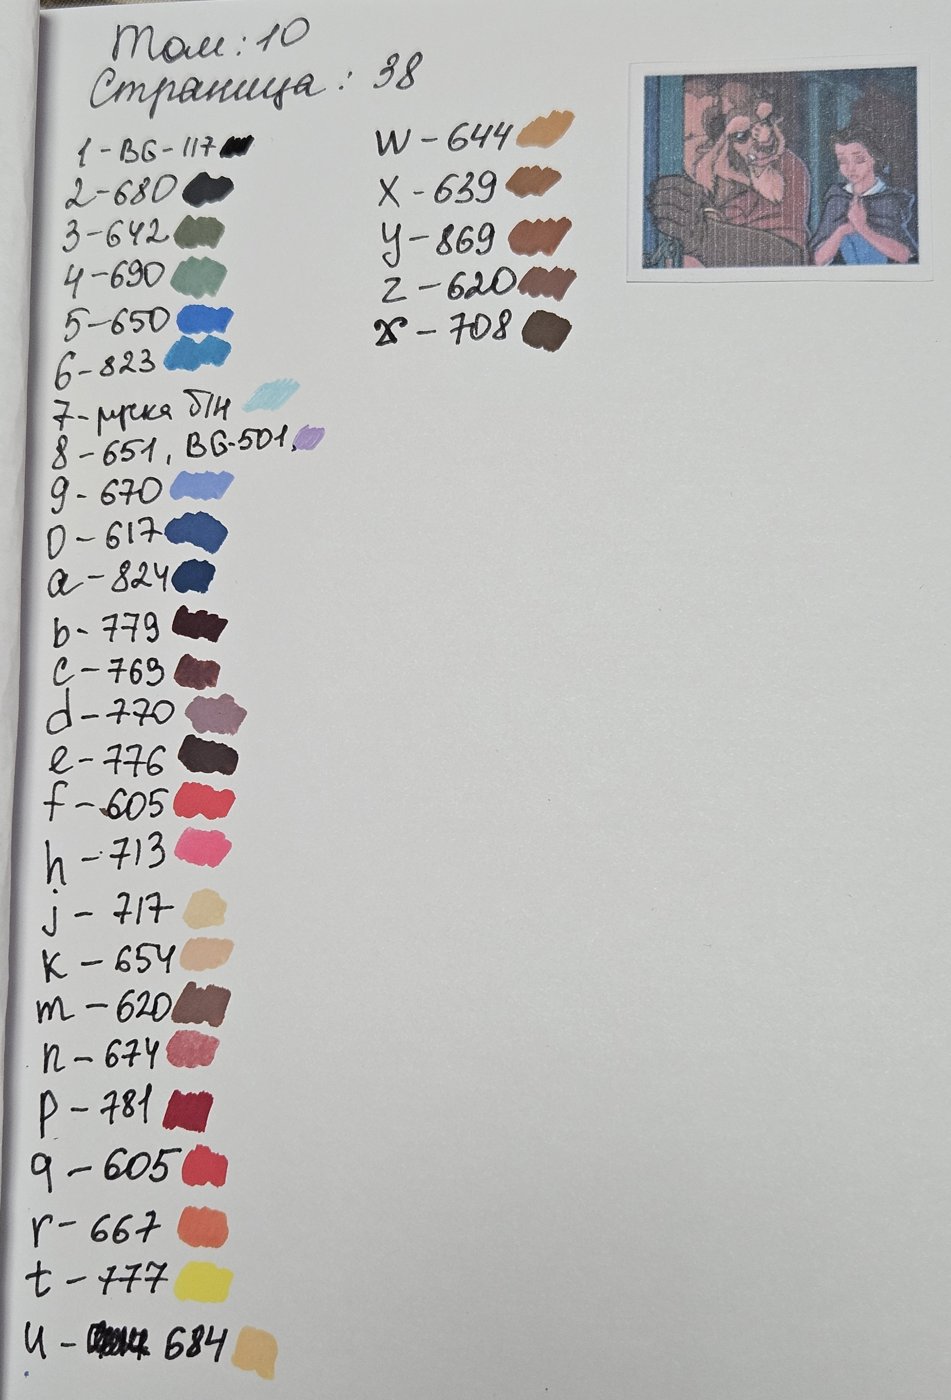 Том: 10
Страница: 38
1 - BG - 117
2 - 680
3 - 642
4 - 690
5 - 650
6 - 823
7 - ручка б/н
8 - 651, BG-501,
9 - 670
0 - 617
a - 824
b - 779
c - 769
d - 770
e - 776
f - 605
h - 713
j - 717
k - 654
m - 620
n - 674
p - 781
q - 605
r - 667
t - 777
u - 684
w - 644
x - 639
y - 869
z - 620
- 708